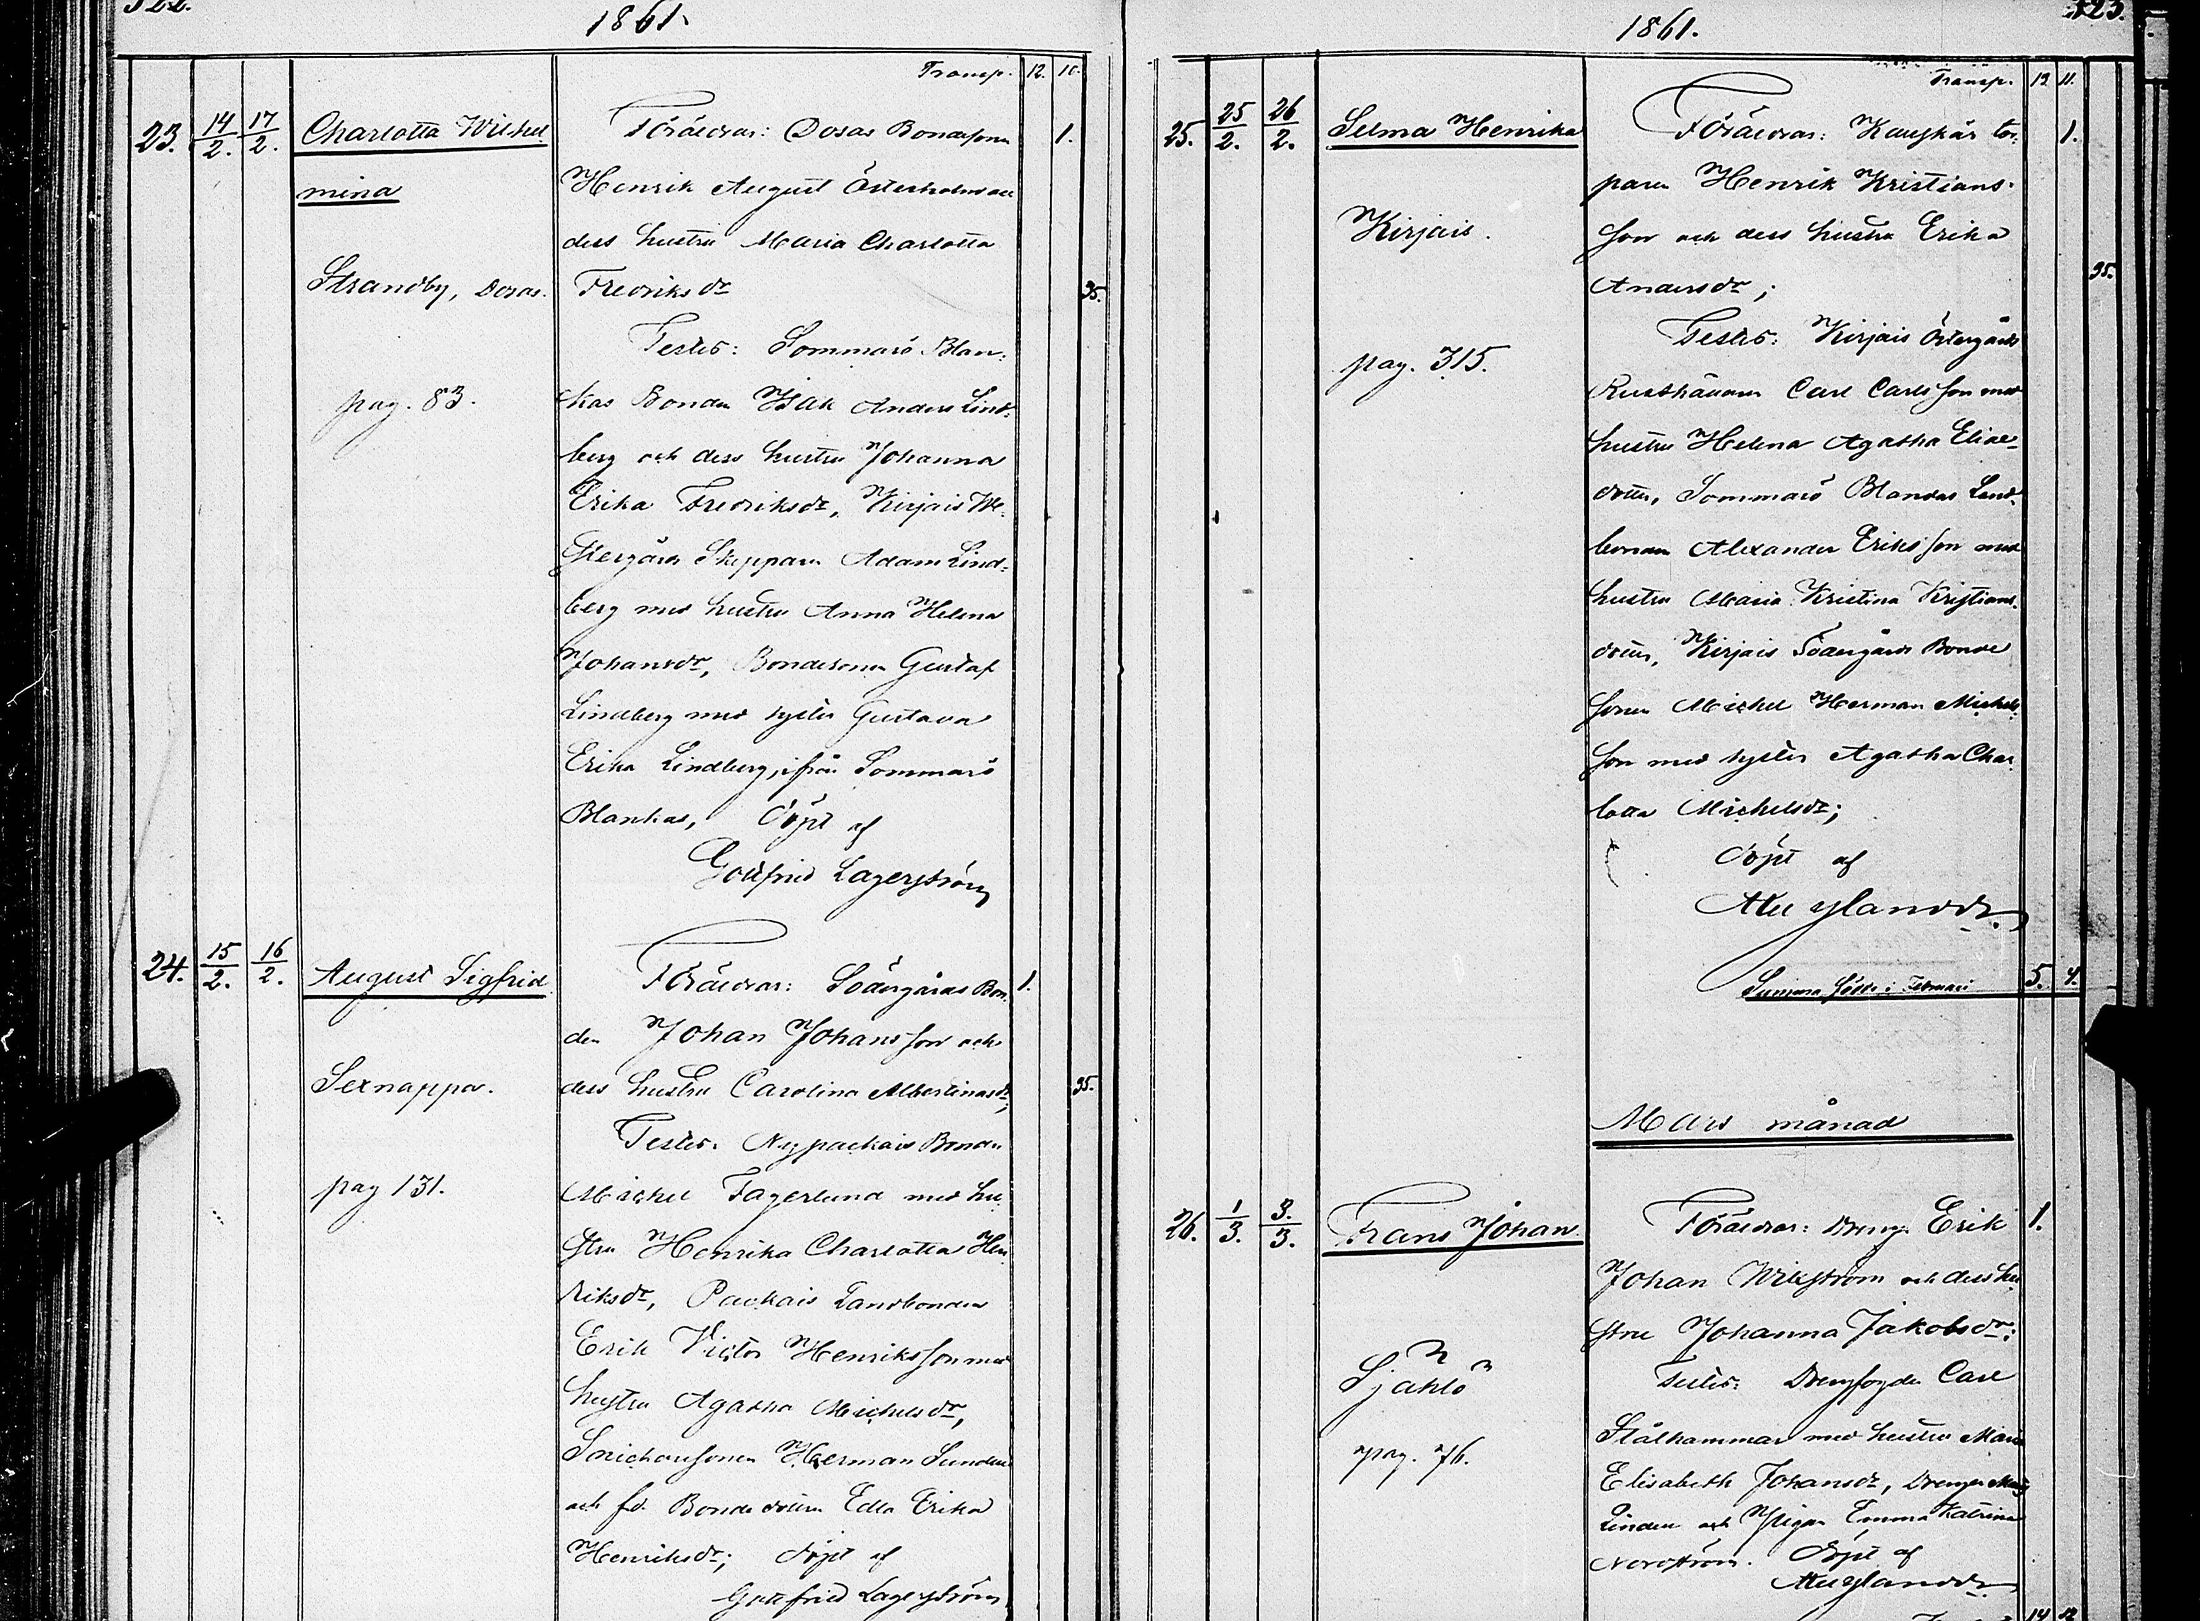 1861.
Transp. 12. 10.
23. 14/2. 17/2. Charlotta Wilhel
mina
Strandby, Dosas.
pag. 83.
Föräldrar: Dosas Bondesonen 1.
Henrik August Österholm och
dess hustru Maria Charlotta
Fredriksdr 35.
Testes: Sommarö Blan-
kas Bonden Isak Anders Lind-
berg och dess hustru Johanna
Erika Fredriksdr, Kirjais We-
stergårds Skepparen Adam Lind-
berg med hustru Anna Helena
Johansdr, Bondesonen Gustaf
Lindberg med syster Gustava
Erika Lindberg, ifrån Sommarö
Blankas, Döpt af
Gottfrid Lagerström
24. 15/2. 16/2. August Sigfrid
Sexnappa.
pag 131.
Föräldrar: Södergårds Bon- 1.
den Johan Johansson och
dess hustru Carolina Albertinasdr; 35.
Testes: Nypackais Bonden
Michel Fagerlund med hu-
stru Henrika Charlotta Hen
riksdr, Packais Landbonden
Erik Victor Henriksson med
hustru Agatha Michelsdr,
Snickarsonen Herman Sunden
och fd. Bondedottren Edla Erika
Henriksdr; döpt af
Gottfrid Lagerström
1861. 123.
Transp. 12 11.
25. 25/2. 26/2. Selma Henrika
Kirjais.
pag. 315.
Föräldrar: Kaupkär tor- 1.
paren Henrik Kristians-
son och dess hustru Erika
Andersdr; 35.
Testes: Kirjais Östergårds
Rusthållaren Carl Carlsson med
hustru Helena Agatha Elias-
dotter, Sommarö Blankas Land-
bonden Alexander Eriksson med
hustru Maria Kristina Kristians-
dotter, Kirjais Södergårds Bonde
sonen Michel Herman Michels-
son med syster Agatha Char
lotta Michelsdr;
döpt af
Summa födde i Februari 5. 4.
Mars månad
26. 1/3. 3./3. Frans Johan
Själö
pag. 76.
Föräldrar: Dreng. Erik 1.
Johan Wikström och dess hu
stru Johanna Jakobsdr;
Testes: Drengfogden Carl
Stålhammar med hustru Maria
Elisabeth Johansdr, Drengen
Linden och Pigan Emma Katrina
Nordström. Döpt af
14 12